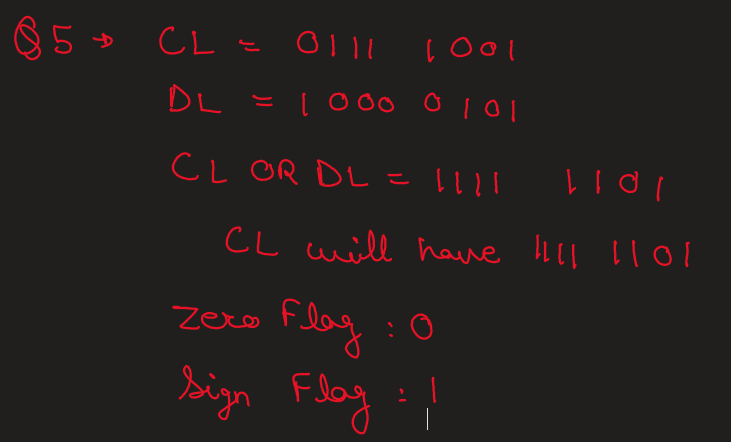 Q5 → CL = 0111 1001
DL = 1000 0101
CL OR DL = 1111 1101
CL will have 1111 1101
Zero Flag : 0
Sign Flag : 1